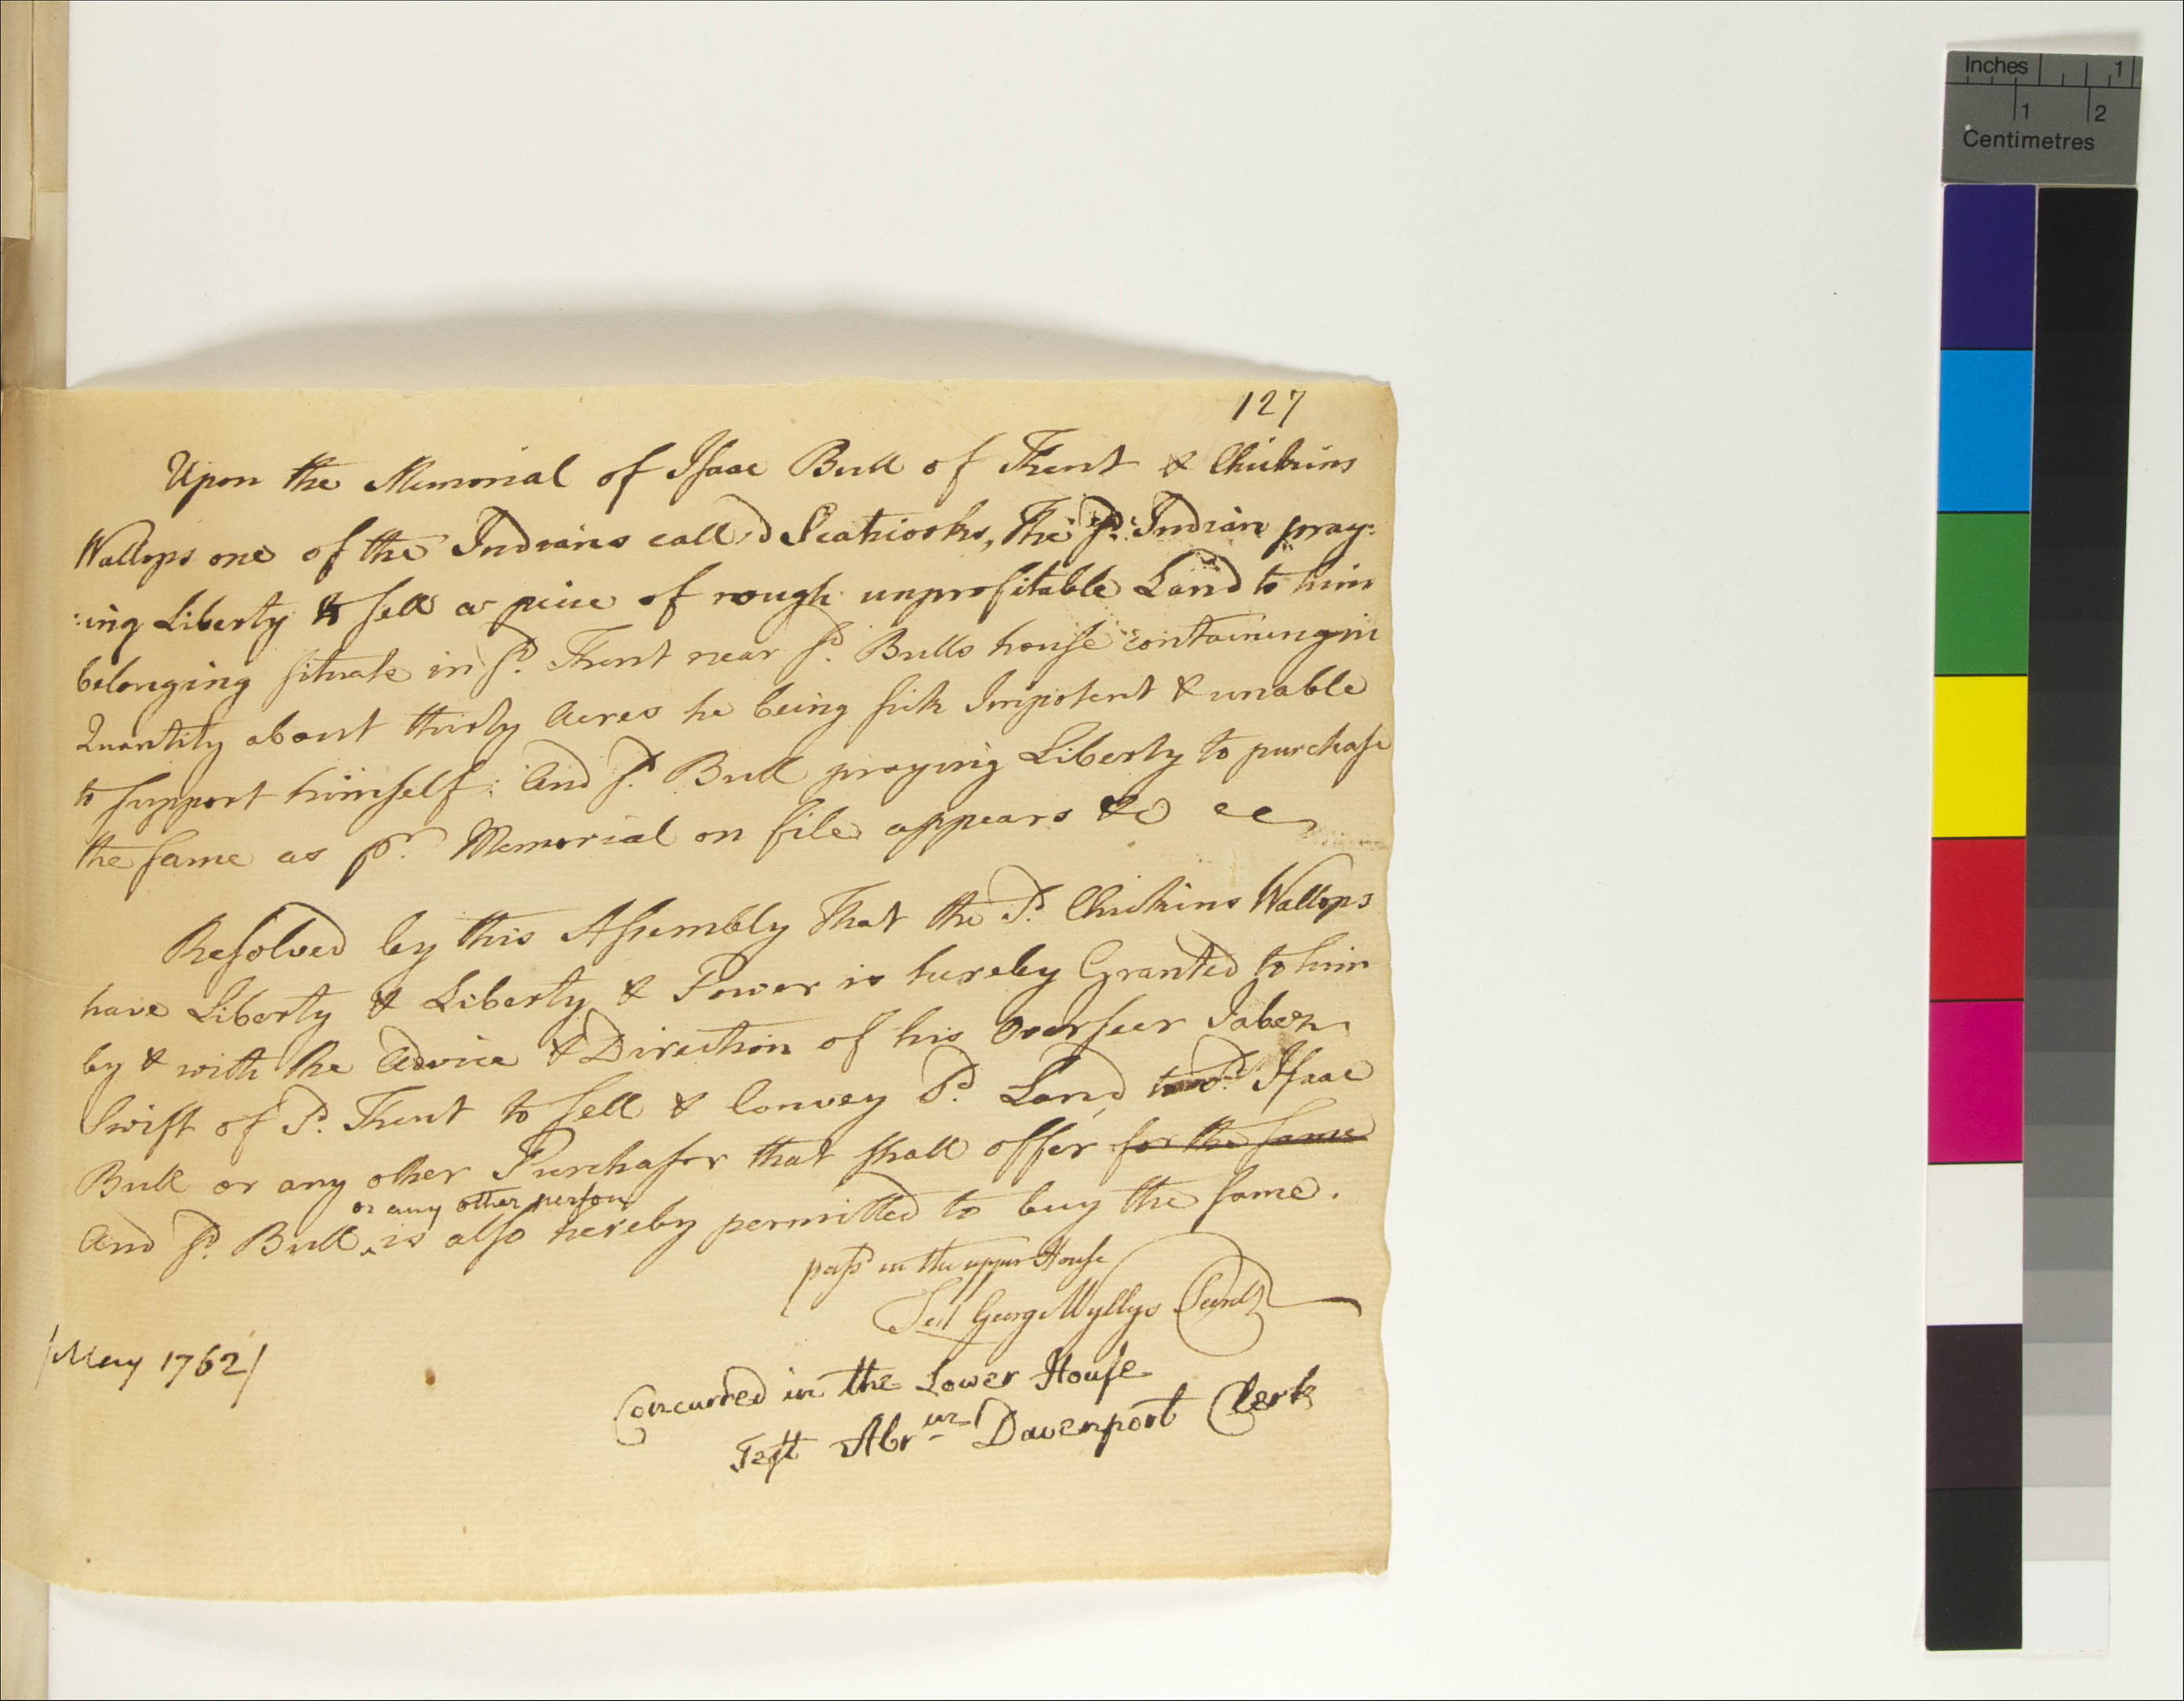 127
Upon the Memorial of Isaac Bull of Kent & Chickins
Wallops one of the Indians call'd Scatacooks, The sd. Indian pray:
:ing Liberty to sell a piece of rough unprofitable Land to him
belonging situate in sd. Kent near sd. Bulls house containing in
Quantity about thirty Acres he being sick Impotent & unable
to support himself; And sd. Bull praying Liberty to purchase
the same as pr. Memorial on file appears &c
Resolved by this Assembly That the sd. Chickins Wallops
have Liberty & Liberty & Power is hereby Granted to him
by & with the Advice & Direction of his Overseer Jabez
Swift of sd. Kent to sell & Convey sd. Land to sd. Isaac
Bull or any other Purchaser that shall offer for the same
or any other person
And sd. Bull ‸ is also hereby permitted to buy the same.
past in the upper House
Test George Wyllys Secrety
/May 1762/
Concurred in the Lower House
Test Abrm Davenport Clerk
Inches 1
1 2
Centimetres